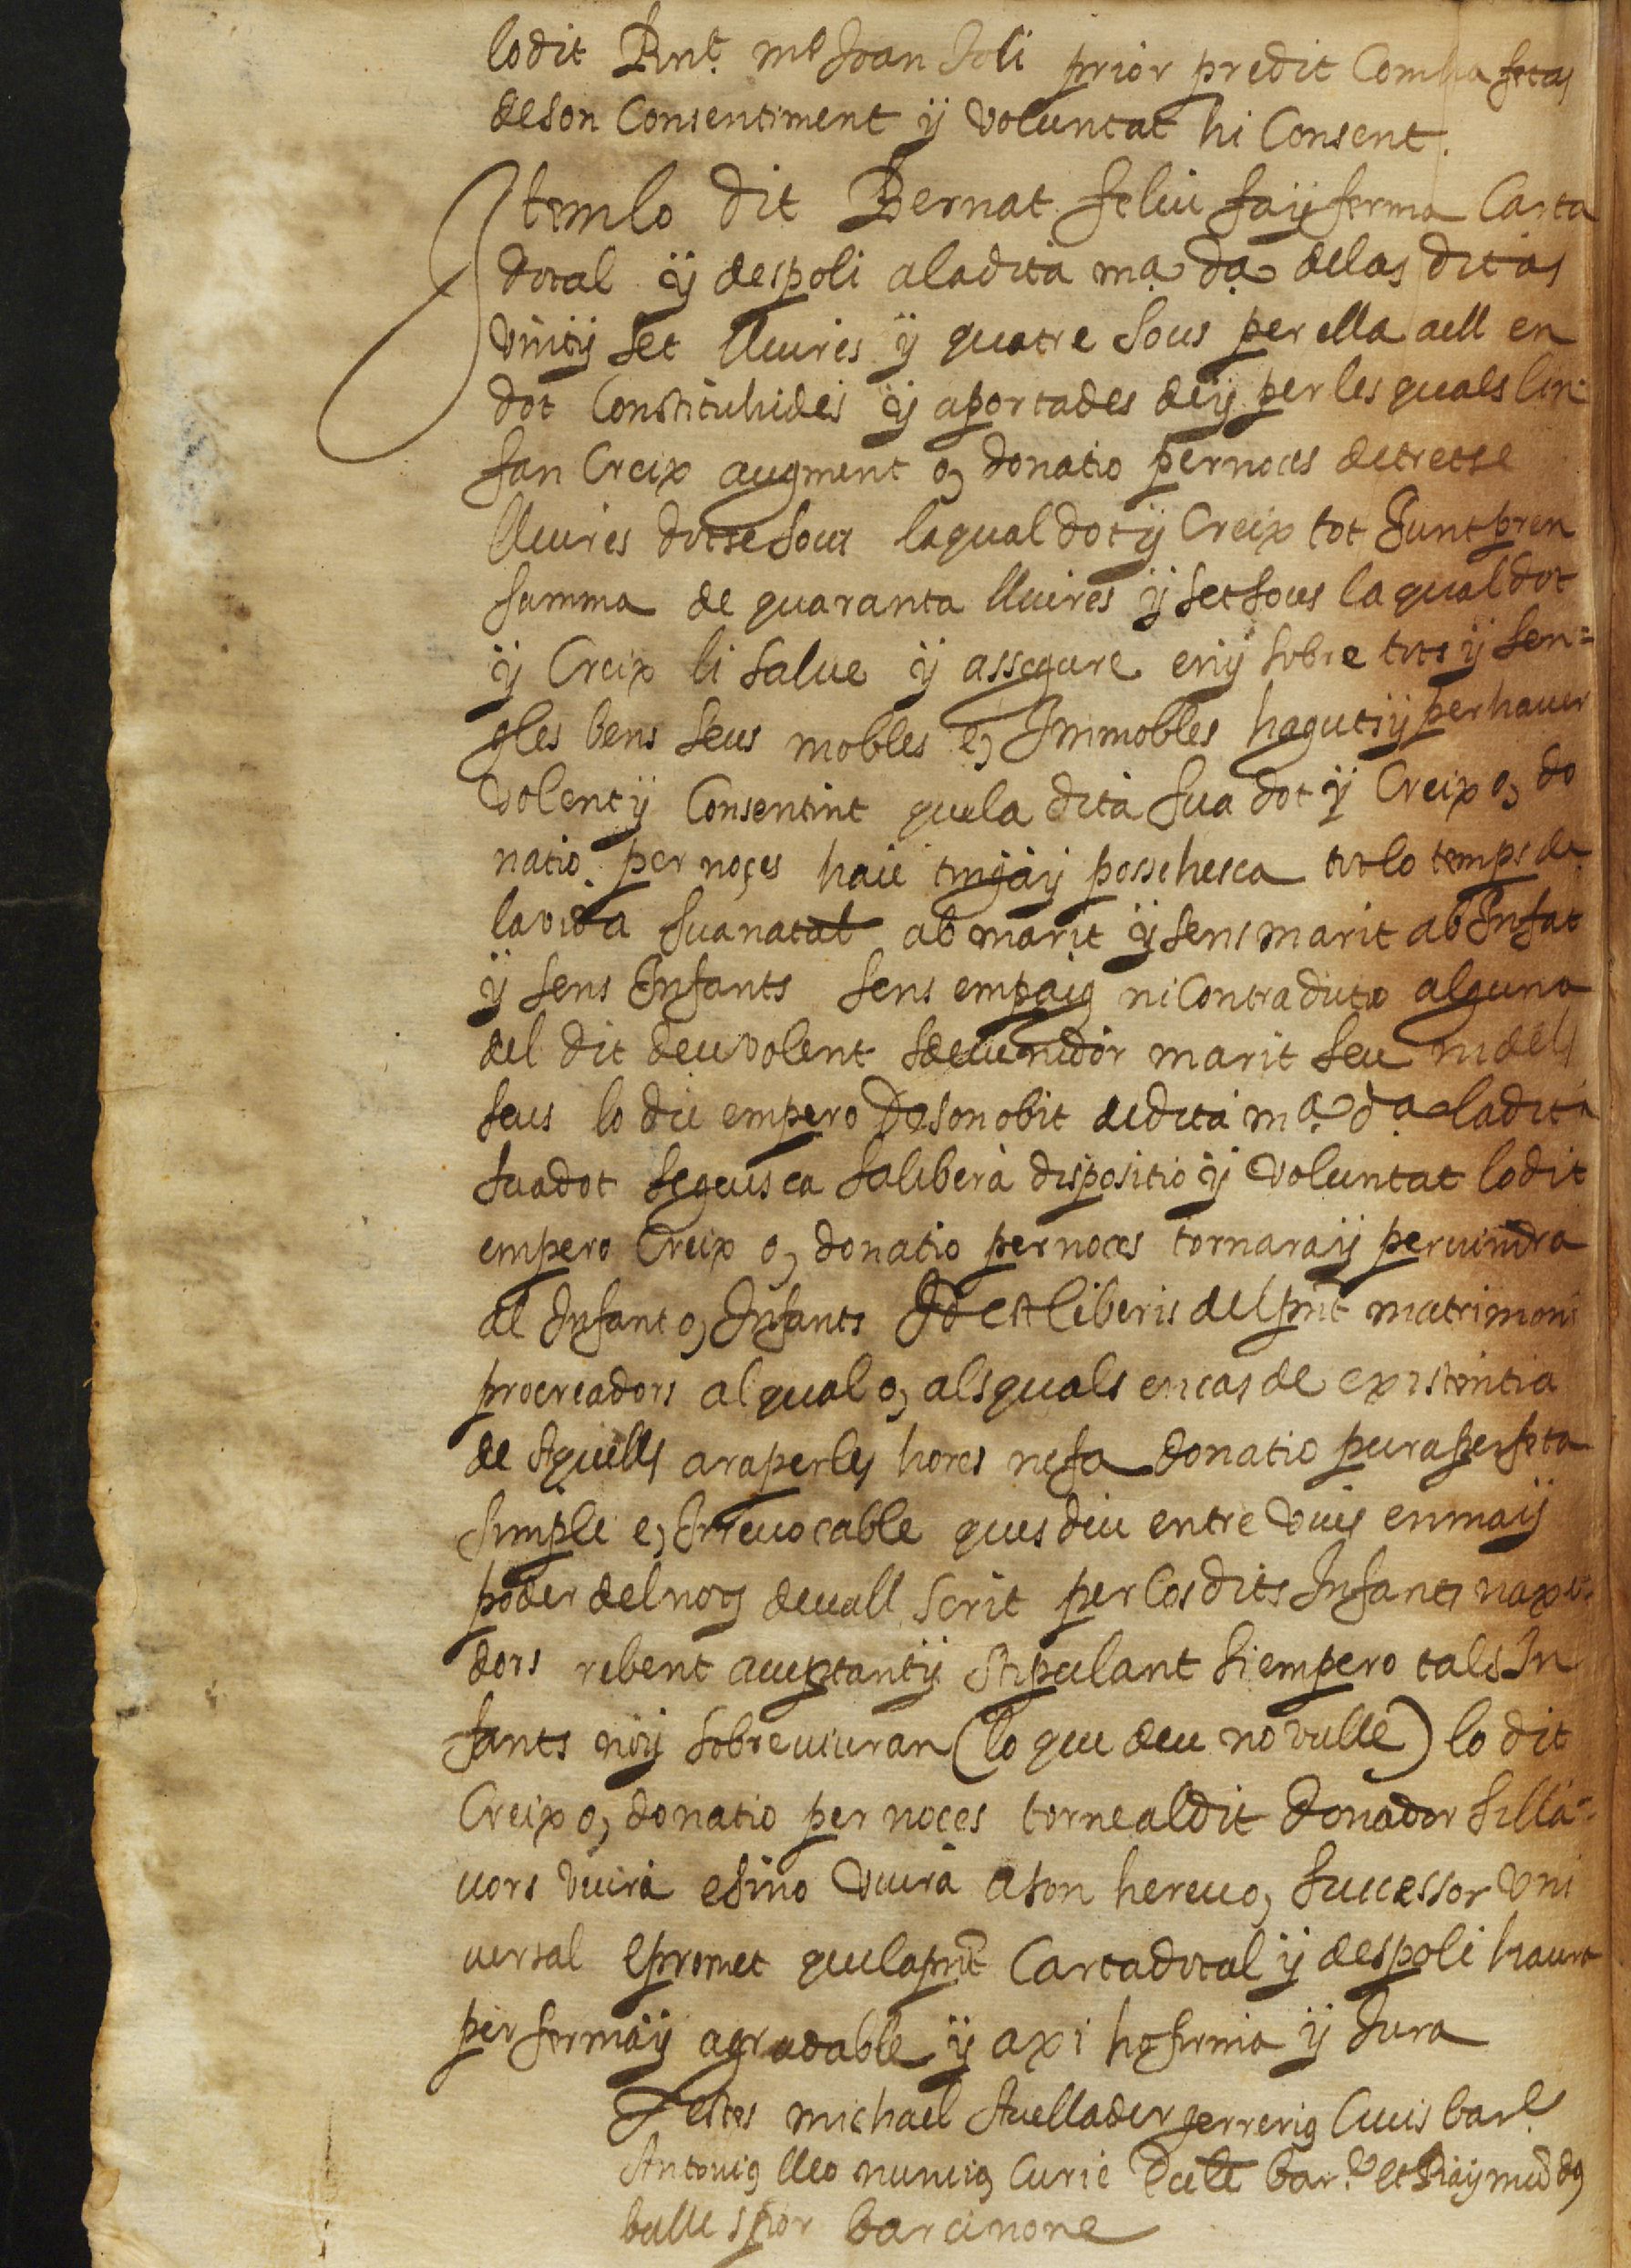 lodit Rnt. mº Joan Soli prior predit Com ha fetas
deson Consentiment ÿ voluntat hi Consent.
Itemlo dit Bernat feliu fa ÿ ferma Carta
dotal ÿ despoli aladita ma. da. delas ditas
vint ÿ set lliures ÿ quatre sous per ella aell en
dot Constituhides ÿ aportades de ÿ per les quals lin
fan Creix augment o, donatio pernoces detretse
lliures dotse sous laqual dot ÿ Creix tot Junt pren
summa de quaranta lliures ÿ set sous laqual dot
ÿ Creix li salve ÿ assegure en ÿ sobre tots ÿ sen=
gles bens seus mobles e, Immobles haguts ÿ per haver
volent ÿ Consentint quela dita sua dot ÿ Creix o, do
natio per noçes haie tinga ÿ possehesca totlo temps de
lavida suanatal ab marit ÿ sens marit ab Infāt
ÿ sens Infants sens empaig ni Contradictio alguna
del dit deuvolent sdevenidor marit seu nidels
seus lo die empero De son obit dedita ma. da. ladita
suadot seguesca salibera dispositio ÿ voluntat lodit
empero Creix o, donatio per noces tornara ÿ pervindra
al Infant o, Infants Id est liberis del pnt matrimoni
procreadors al qual o, alsquals encas de existentia
de Aquells araperles hores nefa donatio pura perfeta
simple e, Irrevocable ques diu entre vius enma ÿ
poder delnot devall scrit per los dits Infants naxe=
dors rebent acceptant ÿ stipulant si empero tals In
fants no ÿ sobreviuran (lo que deu no vulle) lo dit
Creix o, donatio per noçes torne aldit Donador silla=
vors viura esino viura a son hereu o, successor vni
versal epromet quelapnt Cartadotal ÿ despoli haura
per ferma ÿ agradable ÿ axi hoferma ÿ Jura
Testes michael Avellader gerrerius Civis bare.
Antonius lleo nuncius Curie Dicte bar.e et Raymūdus
balle spior barcinone